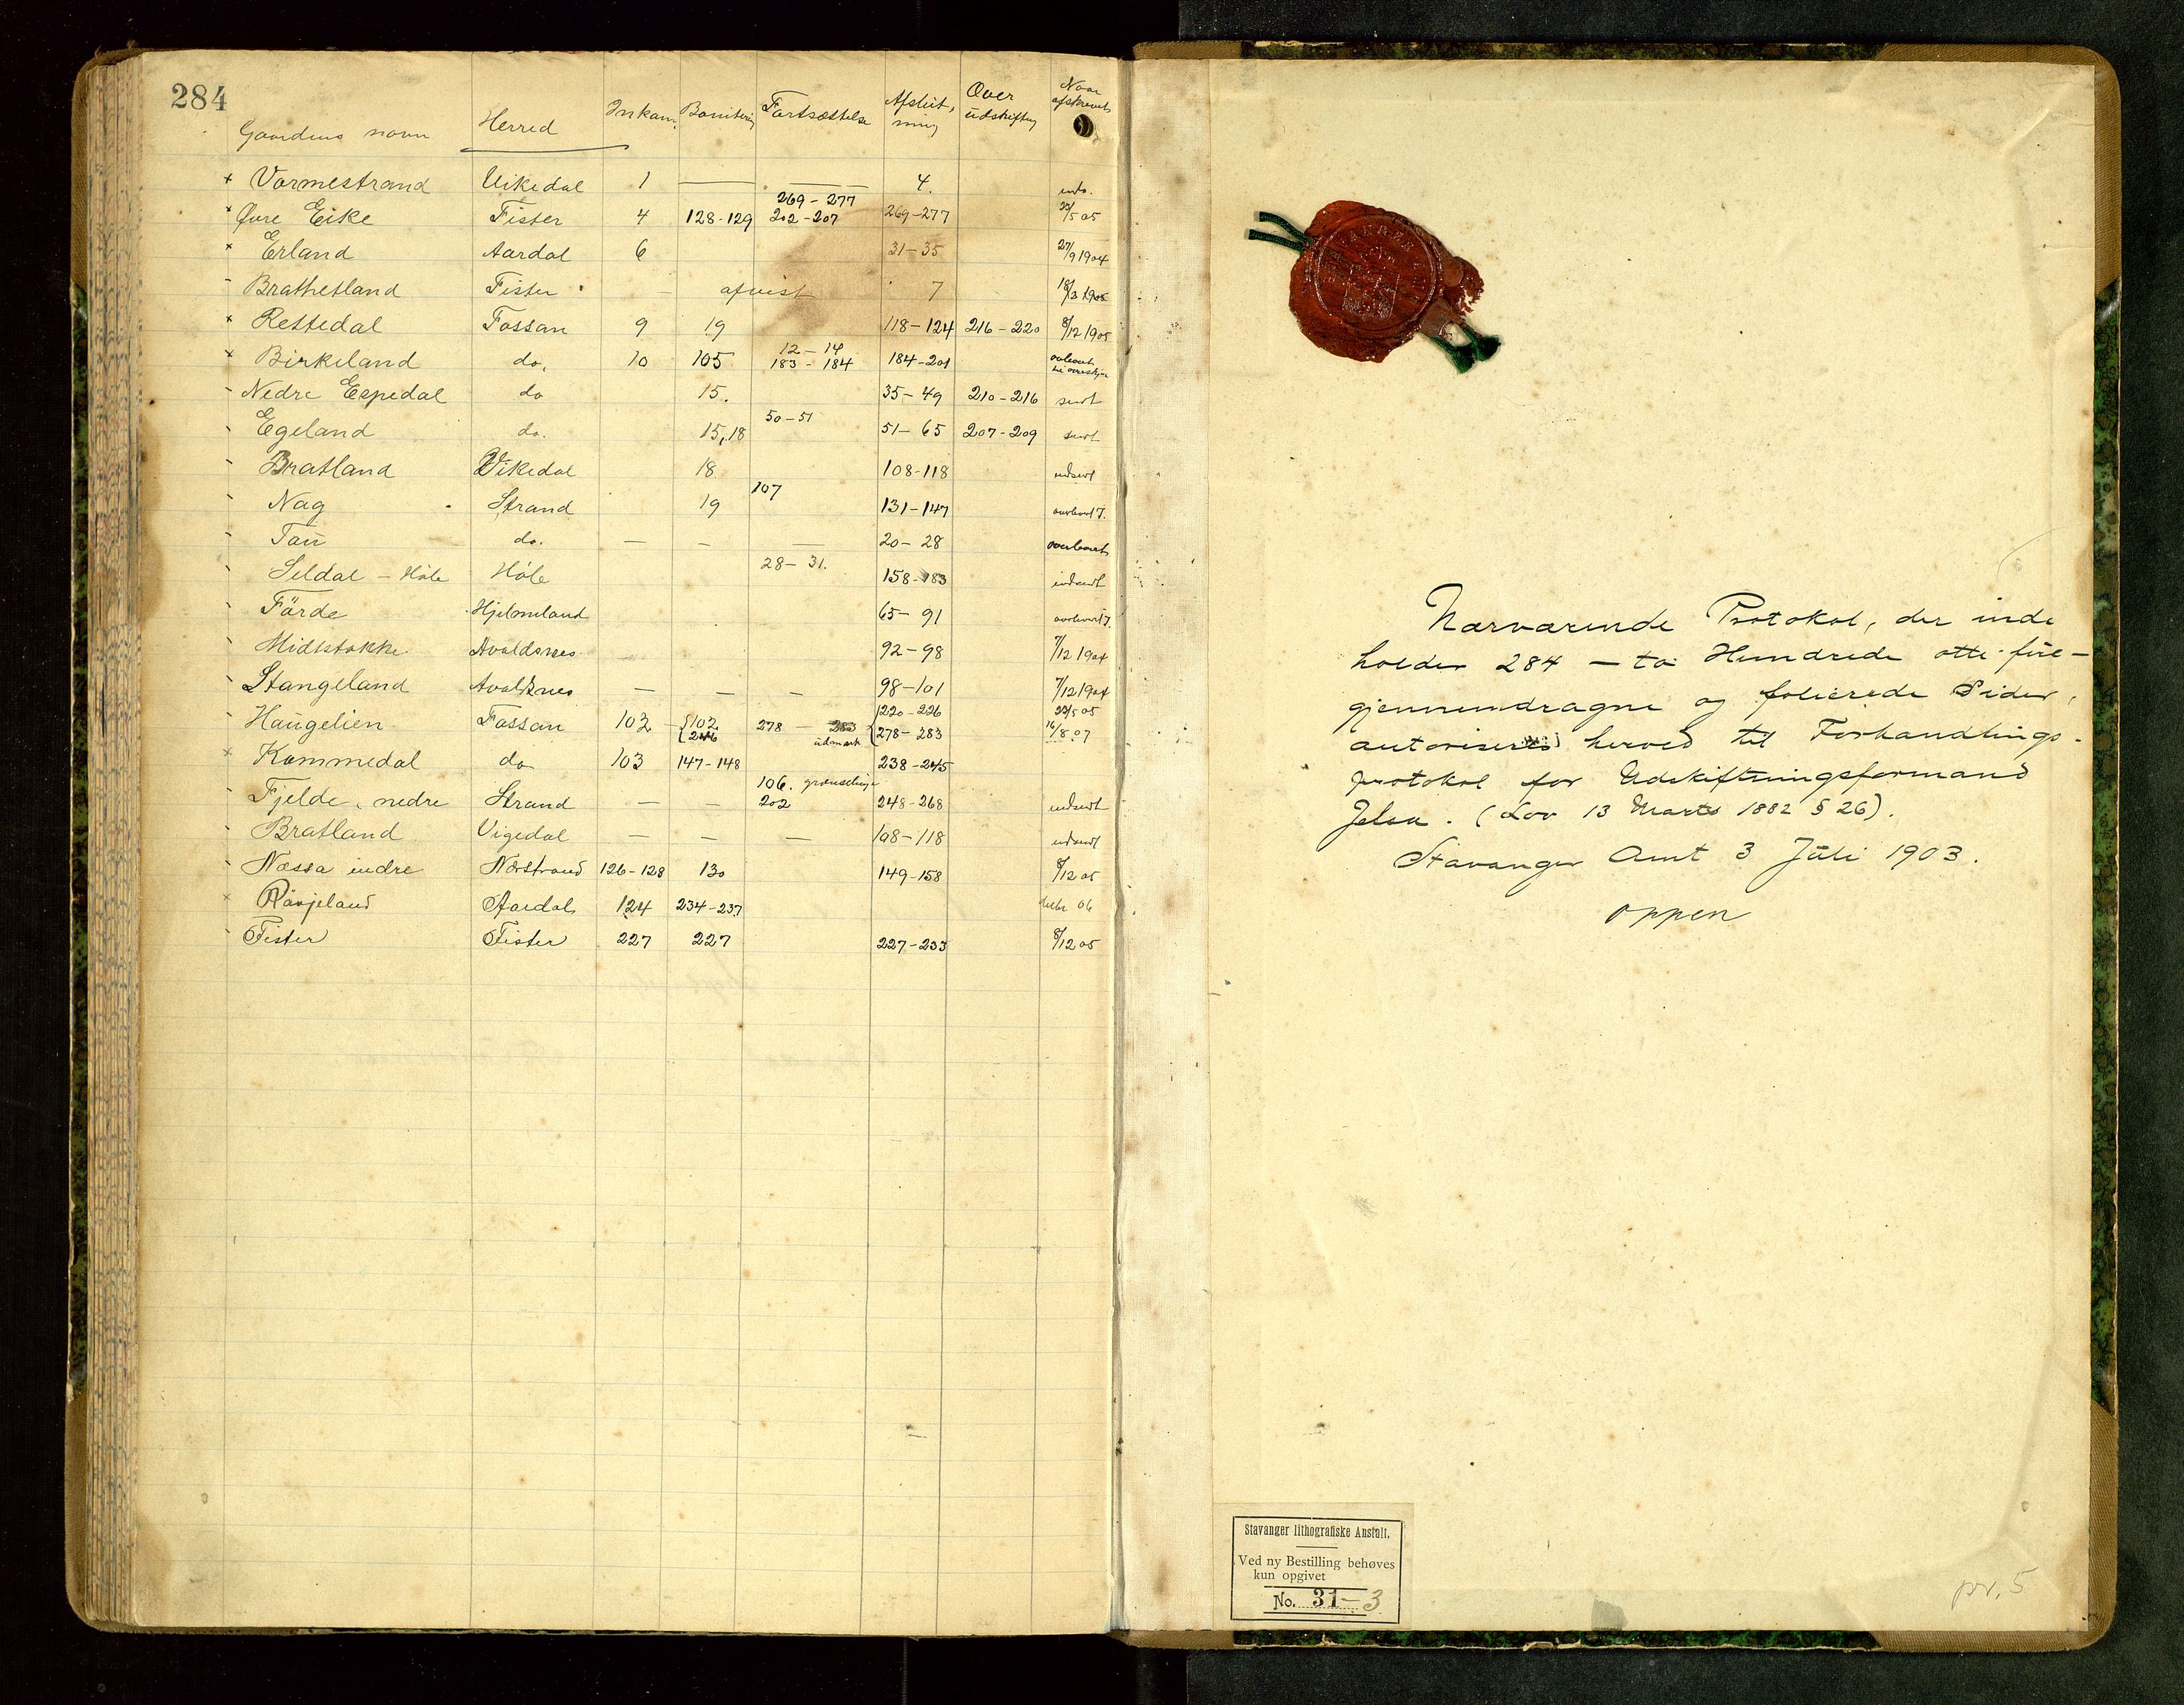 284
Gaardens navn Herred Inkam. Bonitering Fortsættelse Afslut,ning Over udskiftning Naar afskrevet
x Vormestrand Vikedal 1 — — 4. inds.
x Øvre Eike Fister 4 128-129 269-277 202-207 269-277 23/5 05
x Erland Aardal 6 31-35 27/9 1904
- Brathetland Fister — afvist 7 18/3 1905
x Rettedal Fossan 9 19 118-124 216-220 8/12 1905
x Birkeland do. 10 105 12-14 183-184 184-201
- Nedre Espedal do 15. 35-49 210-216 sendt
- Egeland do. 15,18 50-51 51-65 207-209 sendt
- Bratland Vikedal 18 108-118 indsendt
- Nag Strand 19 107 131-147
- Tau do. — — — 20-28 overlevert
- Seldal - Höle Höle 28-31. 158-183 indsendt
- Förde Hjelmeland 65-91
- Midtstokke Avaldsnes 92-98 7/12 1904
- Stangeland Avaldsnes — — — 98-101 7/12 1904
- Haugelien Fossan 102 {102 246 278 — 283 udmark {220-226 278-283 23/5 05 16/8 07
x Kommedal do 103 147-148 238-245
- Fjelde, nedre Strand — — 106. grænselinje 202 248-268 indsendt
- Bratland Vigedal — — — 108-118 indsendt
- Næssa indre Nærstrand 126-128 130 149-158 8/12 05
x Ravjeland Aardal 124 234-237 decbr 06
- Fister Fister 227 227 227-233 8/12 05
Nærværende Protokol, der inde
holder 284 — to Hundrede otti fire —
gjennemdragne og folierede Sider,
autoriseres herved til Forhandlings-
protokol for Udskiftningsformand
Jelsa. (Lov 13 Marts 1882 § 26).
Stavanger Amt 3 Juli 1903.
Oppen
Stavanger lithografiske Anstalt.
Ved ny Bestilling behøves
kun opgivet
No. 31-3
pr. 5